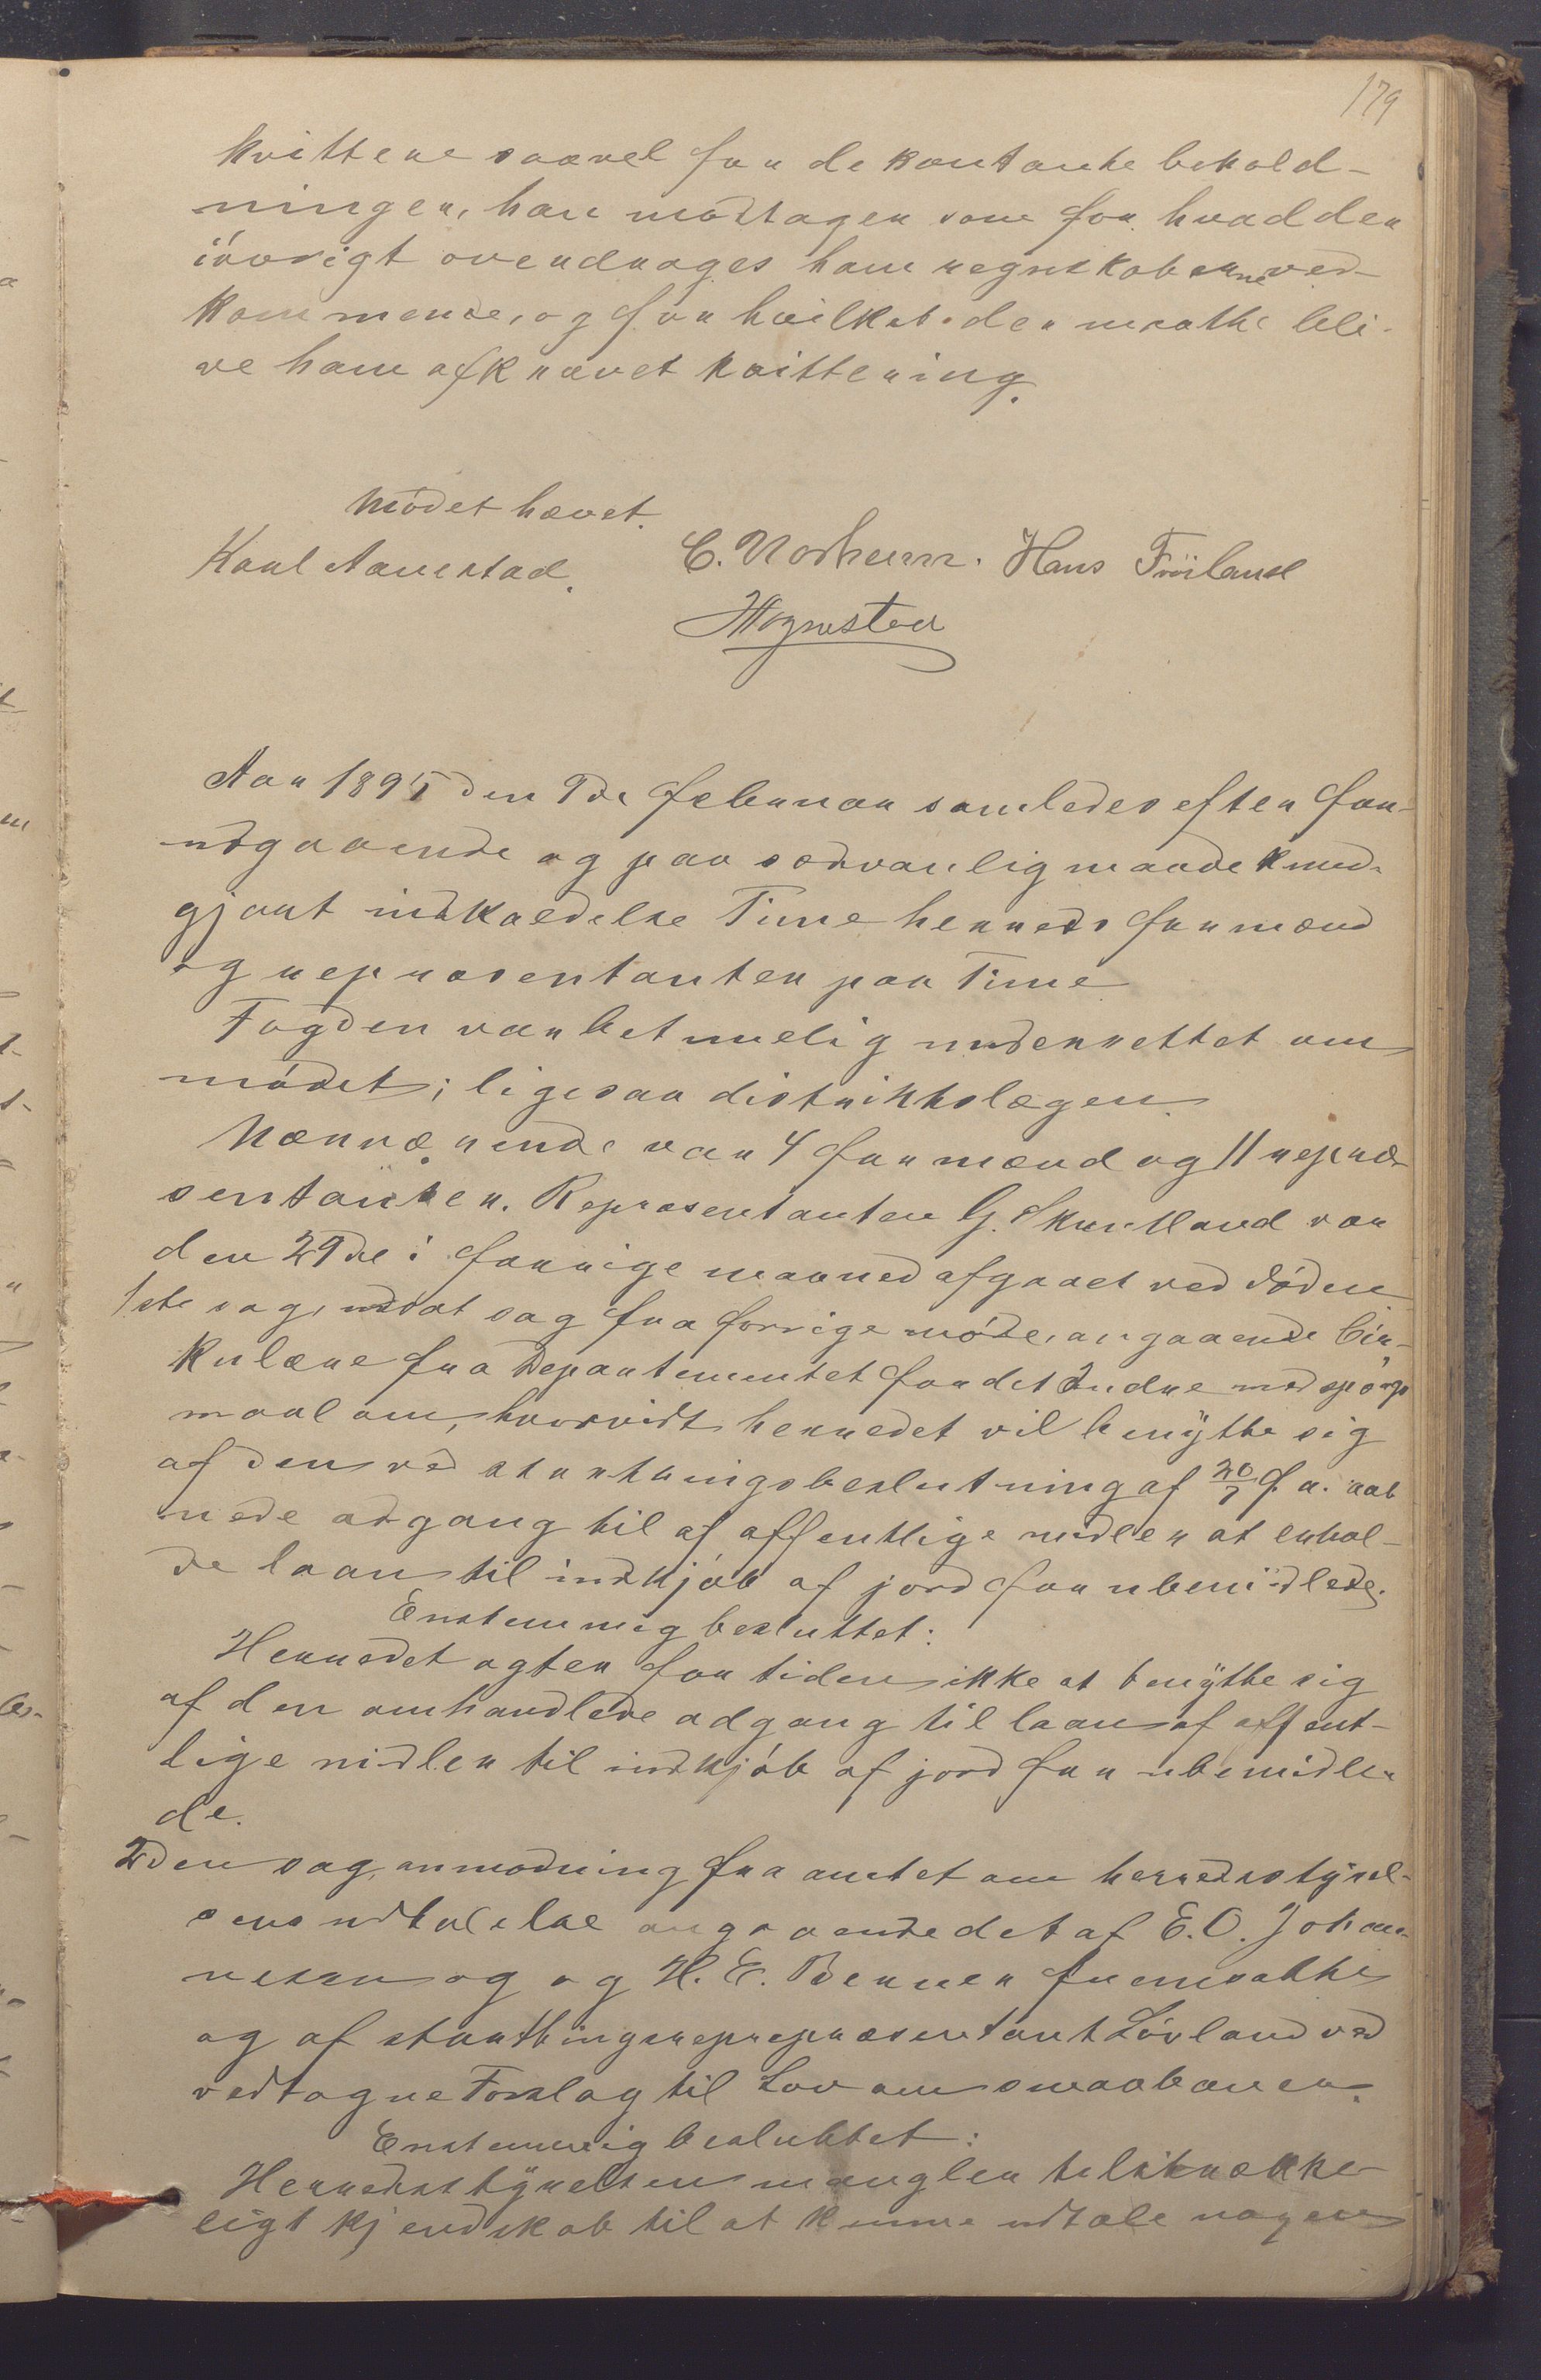 179
kvittere saavel for de kontante behold-
ningen, han modtager som for hvad der
iøvrigt overdrages ham regnskaberne ved-
kommende, og for hvilket der maatte bli-
ve ham afkrævet kvittering.
Mødet hævet.
Karl Aarrestad. C. Norheim. Hans Frøiland
Hognestad
Aar 1895 den 9de februar samledes efter for-
udgaaende og paa sædvanlig maade kund-
gjort indkaldelse Time herreds formænd
og repræsentanter paa Time
Fogden var betimelig underrettet om
mødet; ligesaa distriktslægen.
Nærværende var 4 formænd og 11 repræ-
sentanter. Repræsentanten G. Skretland var
den 29de i forrige maaned afgaaet ved døden
1ste sag, udsat sag fra forrige møde, angaaende Cir-
kulære fra Departementet for det Indre med spørgs
maal om, hvorvidt herredet vil benytte sig
af den ved storthingsbeslutning af 20/7 f. a. aab
nede adgang til af offentlige midler at erhol-
de laan til indkjøb af jord for ubemidlede.
Enstemmig besluttet:
Herredet agter for tiden ikke at benytte sig
af den omhandlede adgang til laan af offent-
lige midler til indkjøb af jord for ubemidle-
de.
2den sag, anmodning fra amtet om herredsstyrel-
sens udtalelse angaaende det af E. O. Johan-
nesen og og H. E. Berner fremsatte
og af storthingsreprepræsentant Løvland ved
vedtagne Forslag til Lov om smaabaner.
Enstemmig besluttet:
Herredsstyrelsen mangler tilstrække-
ligt kjendskab til at kunne udtale nogen